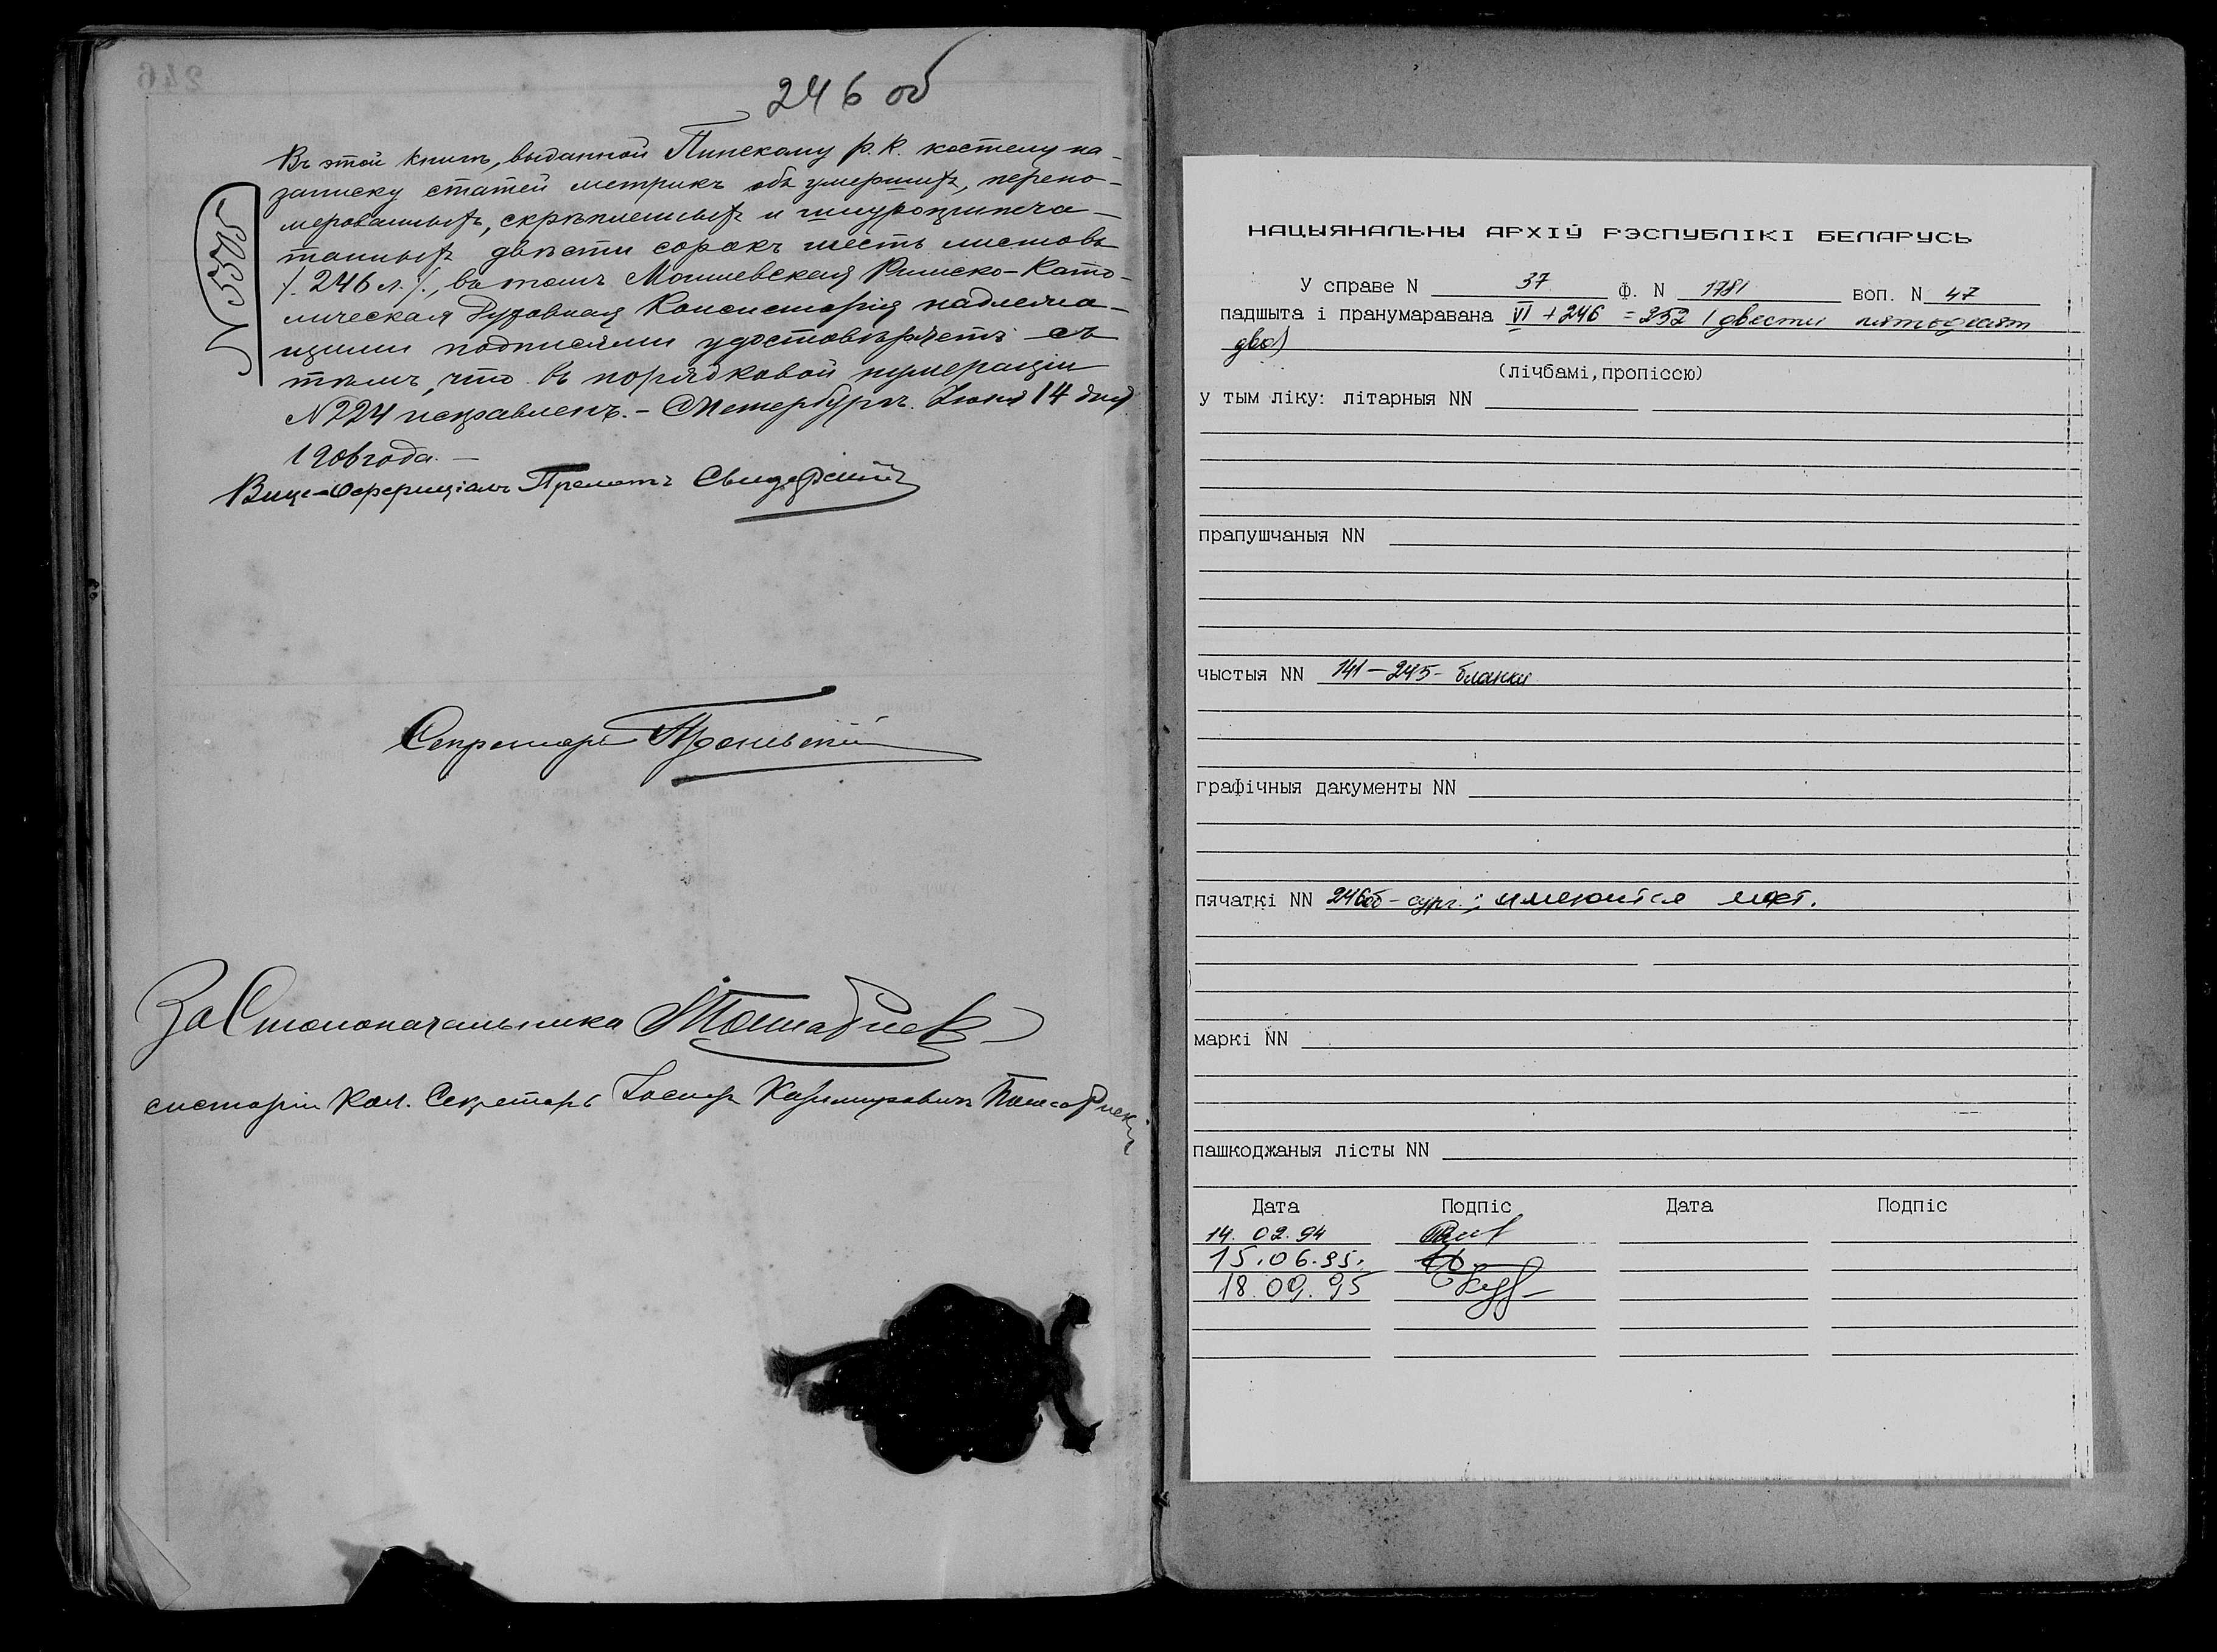 246 об
246
N 5505
Въ этой книгѣ, выданной Пинскому р. к. костелу на-
записку статей метрикъ объ умершихъ, перено-
мерованныхъ, скрѣпленныхъ и шнуроприпеча-
танныхъ двѣсти сорокъ шесть листовъ
/. 246 л ./, въ томъ Могилевская Римско-Като-
лическая Духовная Консисторія надлежа-
щими подписями удостовѣряетъ съ
тѣмъ, что въ порядковой нумераціи
N 224 исправленъ. – СПетербургъ. Іюня 14 дня
1906 года. –
Вице-Оффиціалъ Прелатъ Свидерскій
Секретарь
За Столоначальника
систоріи Кол. Секретарь Іосифъ Казимировичъ
НАЦЫЯНАЛЬНЫ АРХІЎ РЭСПУБЛІКІ БЕЛАРУСЬ
У справе N 37 Ф. N 1781 воп. N 47
падшыта і пранумаравана VI + 246 = 252 (двести пятьдесят
два)
(лічбамі,пропіссю)
у тым ліку: літарныя NN
прапушчаныя NN
чыстыя NN 141 – 245 - бланки
графічныя дакументы NN
пячаткі NN 246об - сург.; имеются маст.
маркі NN
пашкоджаныя лісты NN
Дата Подпіс Дата Подпіс
14. 02. 94
15.06.95.
18. 09. 95